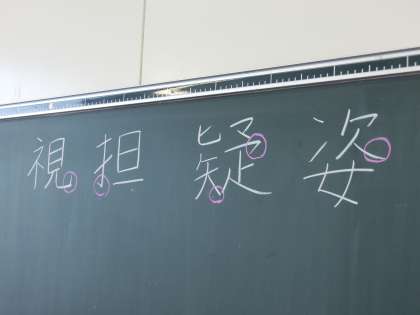 視 担 疑 姿